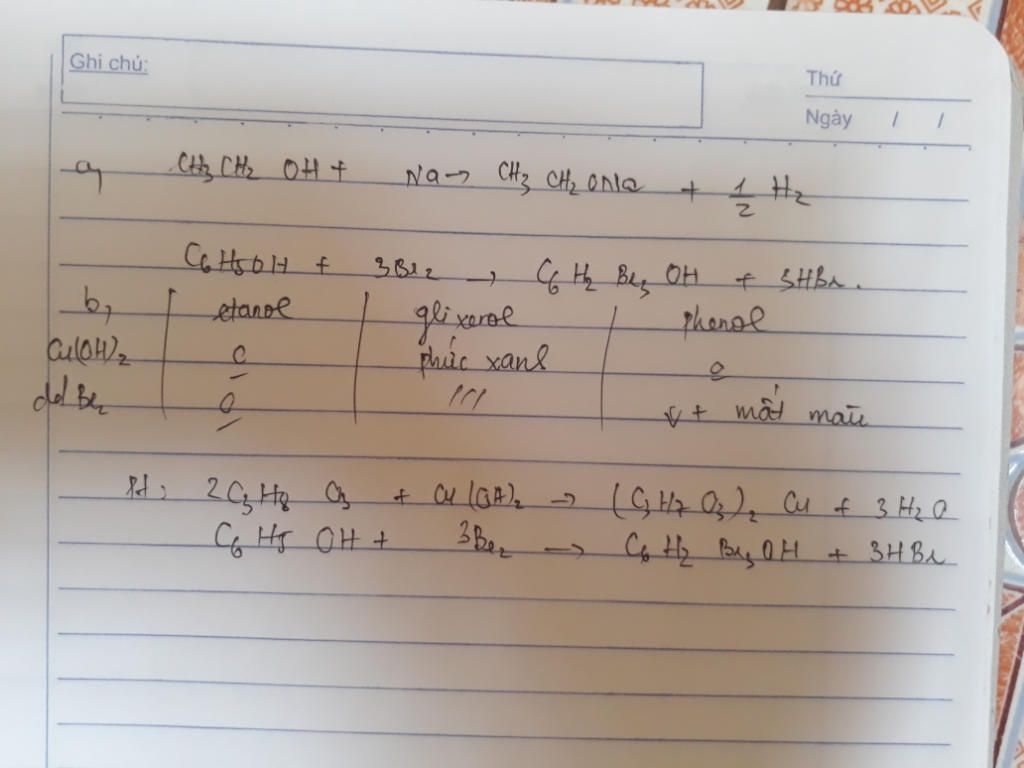 Ghi chú:
Thứ
Ngày / /
a, CH3CH2 OH + Na → CH3 CH2 ONa + 1/2 H2
C6H5OH + 3Br2 → C6H2 Br3 OH + 3HBr.
b, | etanol | glixerol | phenol
Cu(OH)2 | 0 | phức xanh | 0
dd Br2 | 0 | /// | ↓ + mất màu
Pt: 2C3H8 O3 + Cu(OH)2 → (C3H7O3)2 Cu + 3H2O
C6H5 OH + 3Br2 → C6H2 Br3OH + 3HBr